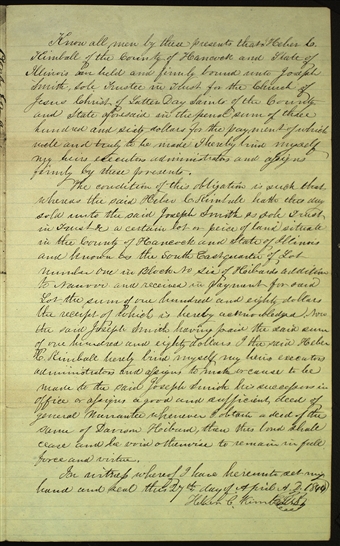 Know all men by these presents that I Heber C.
Kimball of the County of Hancock and State of
Illinois am held and firmly bound unto Joseph
Smith, sole Trustee in Trust for the Church of
Jesus Christ of Latter Day Saints of the County
and State aforesaid in the penal sum of three
hundred and sixty dollars for the payment of which
well and truly to be made I hereby bind myself
my heirs executors administrators and assigns
firmly by these presents.
The condition of this obligation is such that
whereas the said Heber C. Kimball hath this day
sold unto the said Joseph Smith as sole Trustee
in Trust a certain lot or piece of land situate
in the County of Hancock and State of Illinois
and known as the South East quarter of Lot
number one in Block No six of Hibards addition
to Nauvoo and received in payment for said
Lot the sum of one hundred and eighty dollars
the receipt of which is hereby acknowledged. Now
the said Joseph Smith having paid the said sum
of one hundred and eighty dollars I the said Heber
C. Kimball hereby bind myself my heirs executors
administrators and assigns to make or cause to be
made to the said Joseph Smith his successors in
office or assigns a good and sufficient deed of
general Warrantee whenever I obtain a deed of the
same of Davison Hibard, then this bond shall
cease and be void otherwise to remain in full
force and virtue.
In witness whereof I have hereunto set my
hand and seal this 27th day of April A.D. 184
Heber C. Kimball